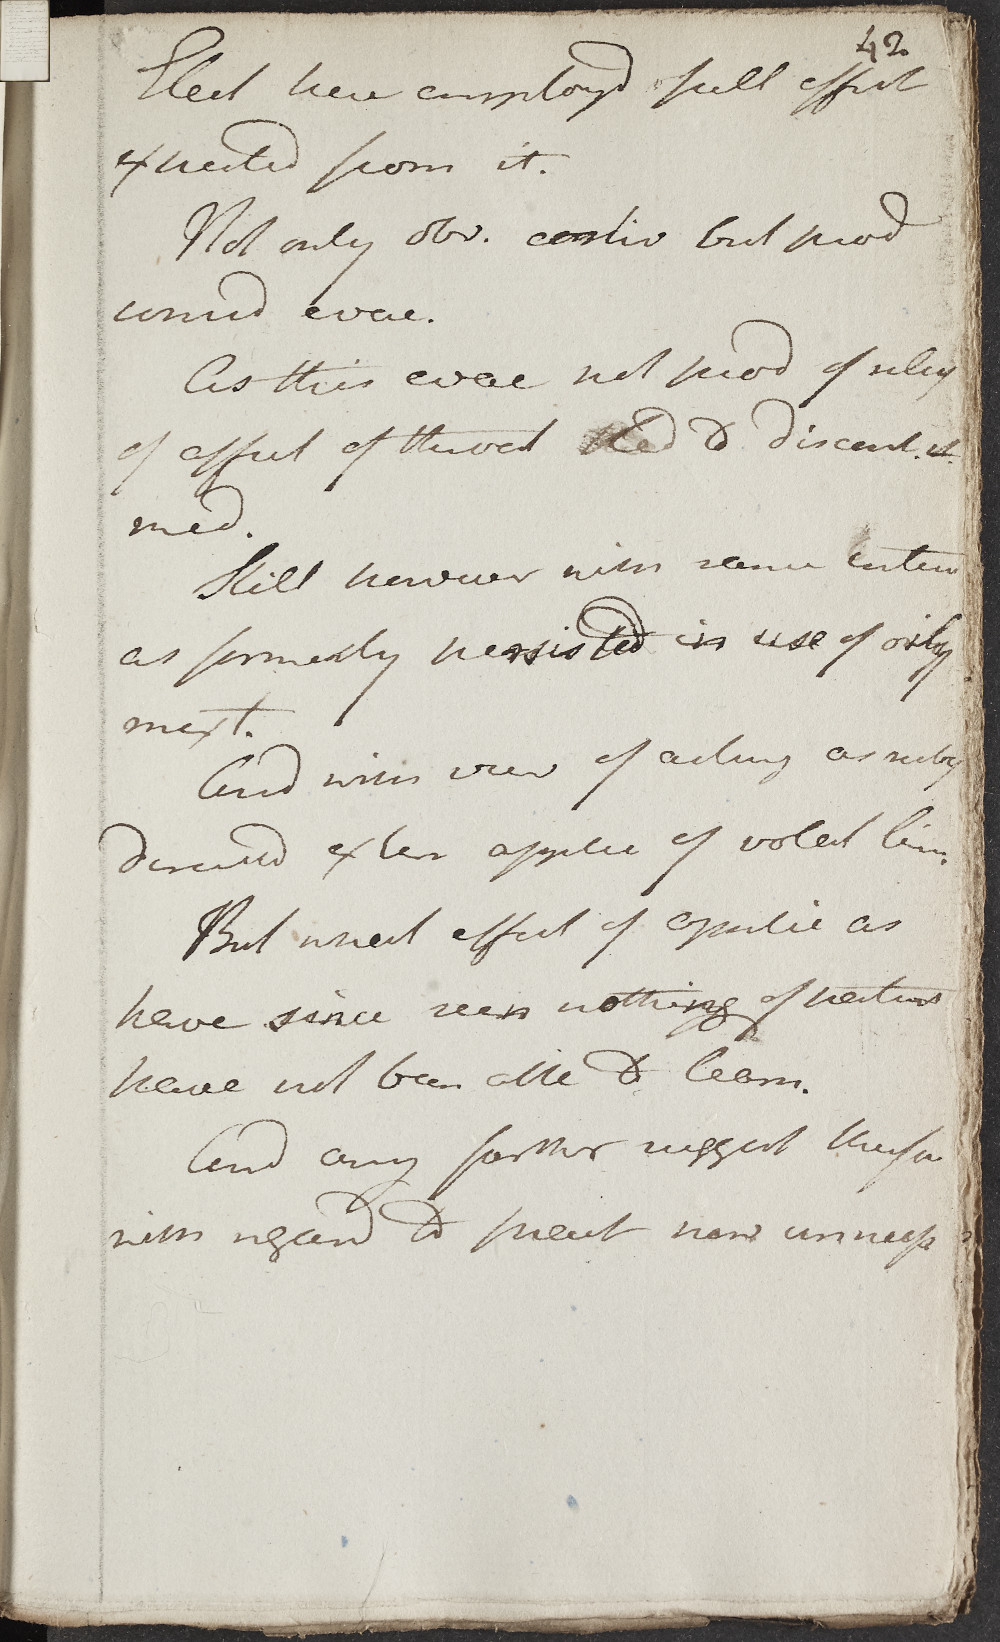 42
Elect here employd full effect
expected from it.
Not only obv. costiv but prod
consid evac.
As this evac not prod of relief
of affect of throat led to discont. it
med.
Still however with same inten
as formerly persisted in use of oily
mixt.
And with view of acting as rubef
directed exter applic of volat lin.
But what effect of applic as
have since seen nothing of patient
have not been able to learn.
And any farther suggest therefor
with regard to treat now unnecess